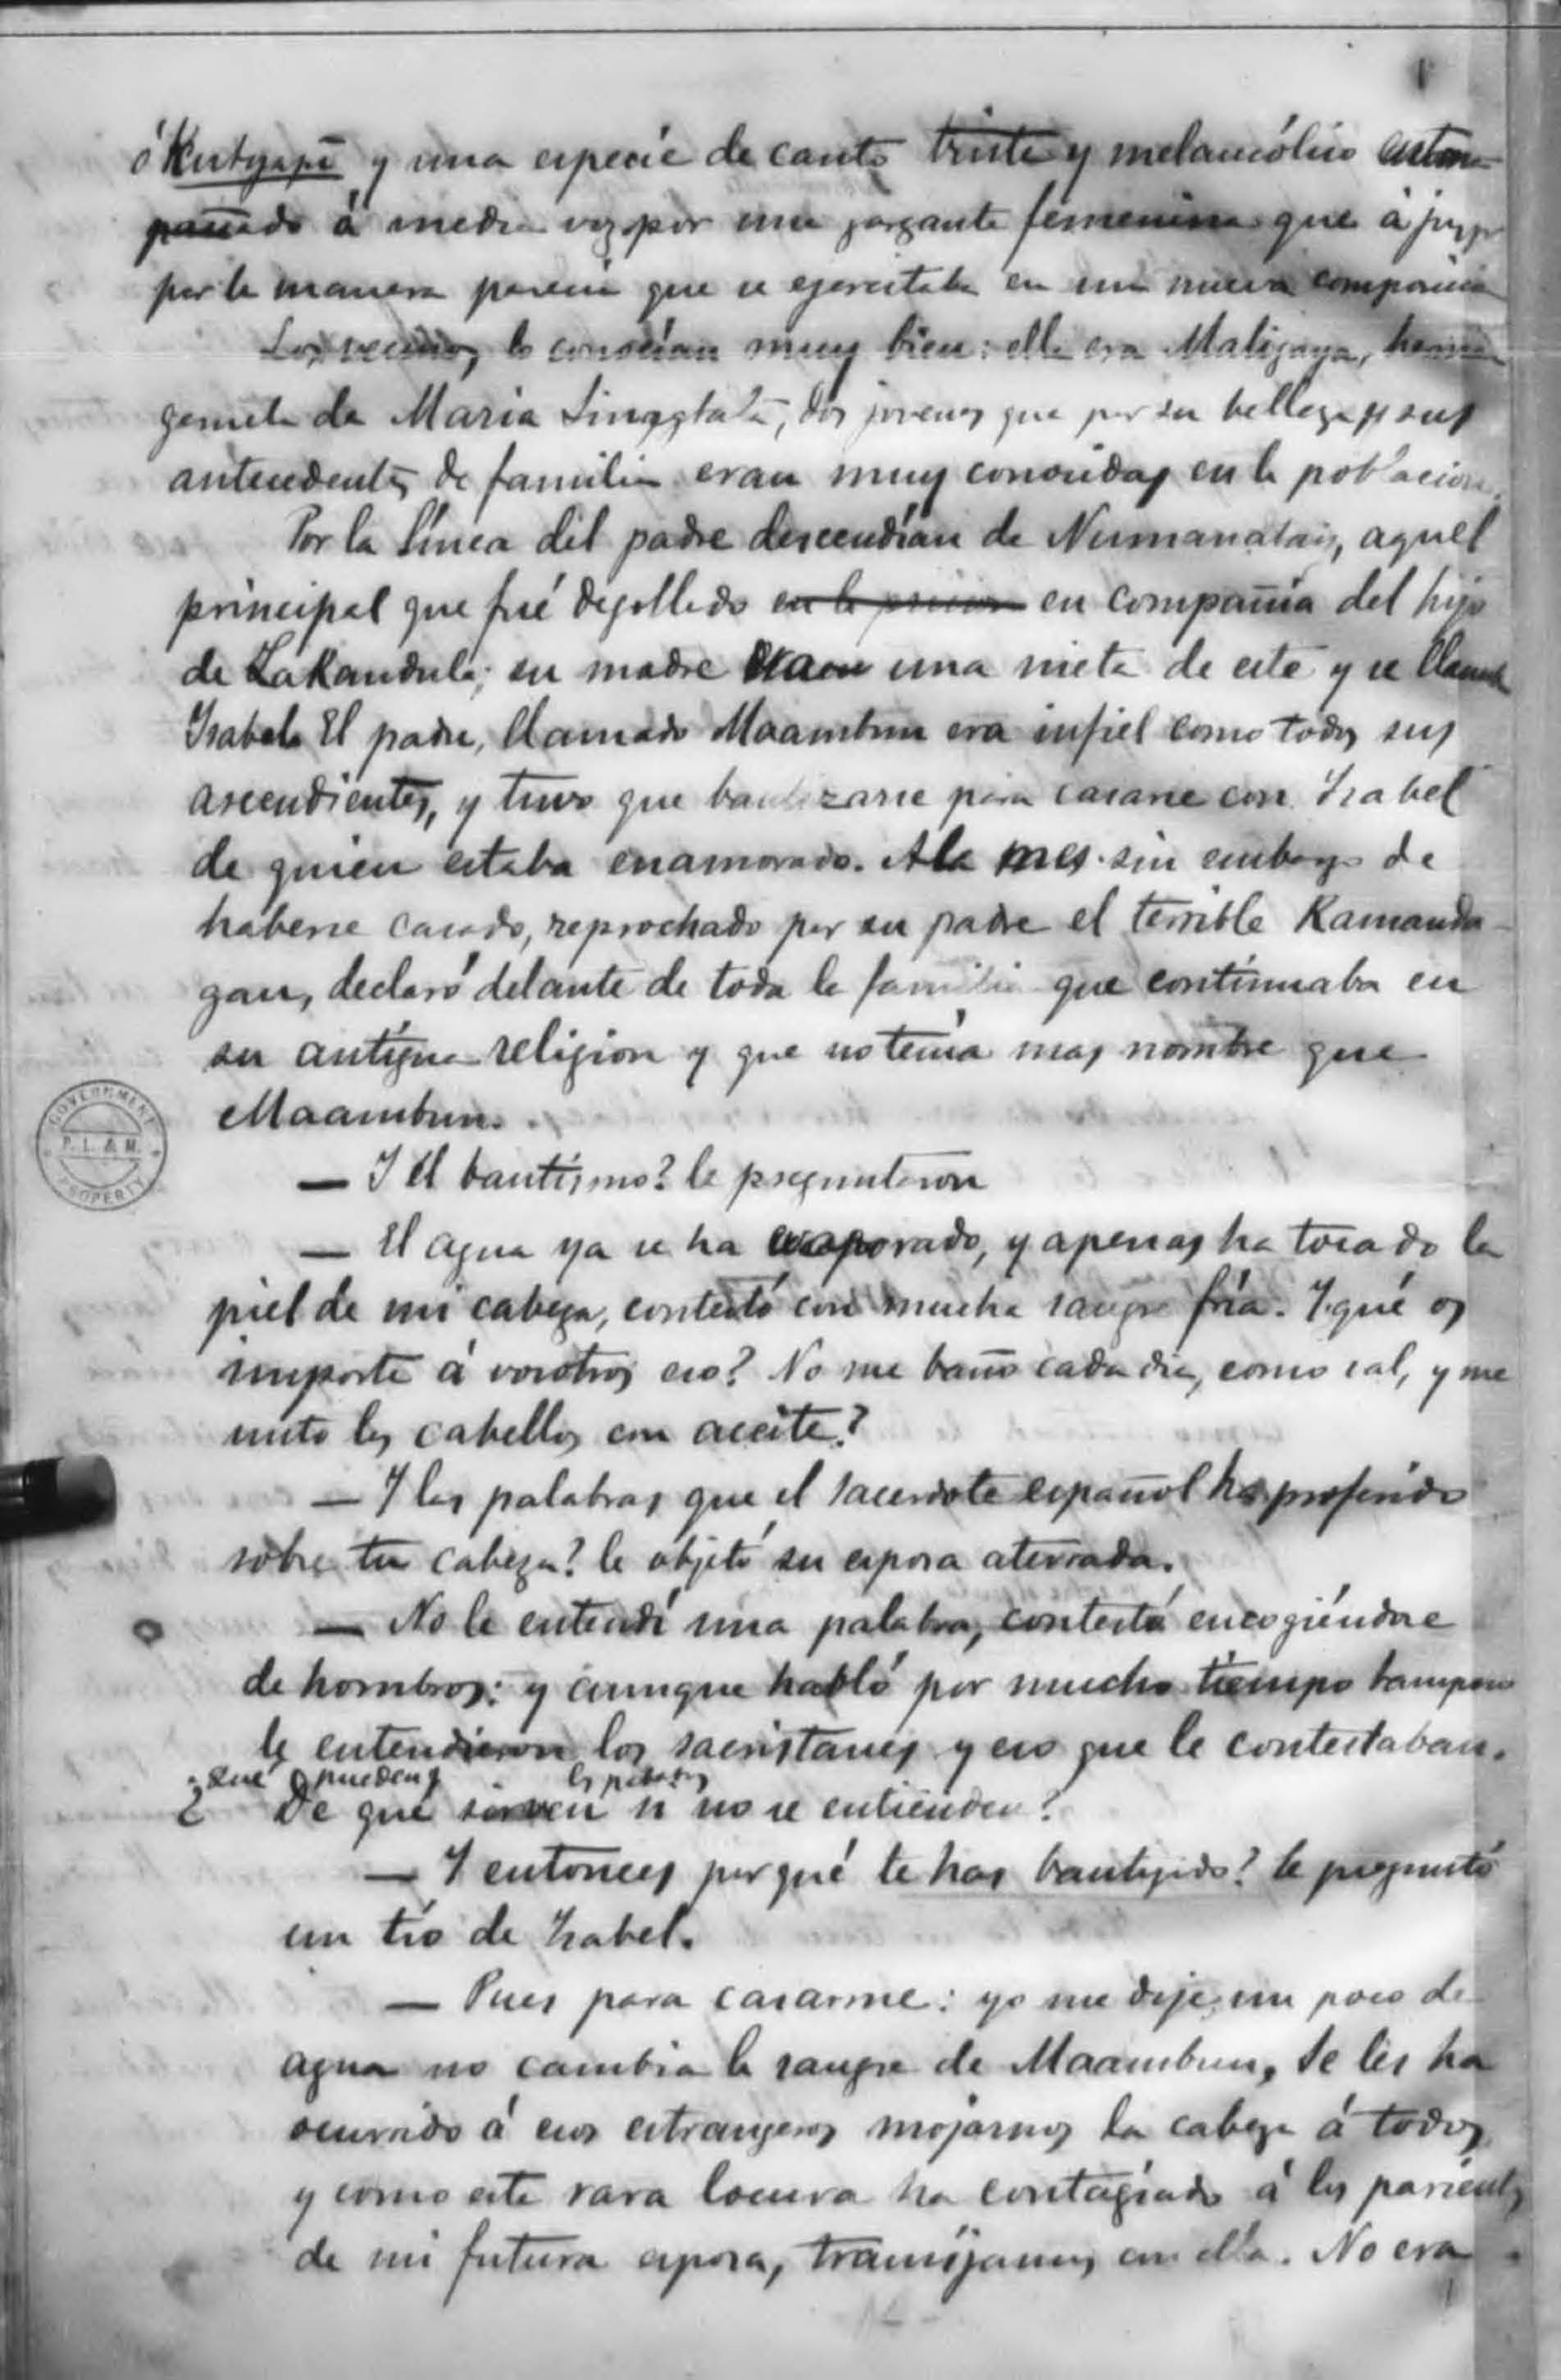 ó Kutyapî y una especie de canto triste y melancólico
á media voz por una garganta femenina que á juzgar
por la manera parecia que se ejercitaba en una nueva composicion
Los vecinos lo conocían muy bien: ella era Maligaya, hermana
gemela de Maria Sinagtala, dos jovenes que por su belleza y sus
antecedentes de familia eran muy conocidas en la poblacion.
Por la línea del padre descendían de Numanatay, aquel
principal que fué degollado en la prision en compañía del hijo
de Lakandula; su madre era una nieta de este y se llamaba
Isabel. El padre, llamado Maambun era infiel como todos sus
ascendientes, y tuvo que bautizarse para casarse con Isabel
de quien estaba enamorado. Al mes sin embargo de
haberse casado, reprochado por su padre el terrible Kamanda-
gan, declaró delante de toda la familia que continuaba en
su antigua religion y que no tenía mas nombre que
Maambun.
— Y el bautismo? le preguntaron
— El agua ya se ha evaporado, y apenas ha tocado la
piel de mi cabeza, contestó con mucha sangre fría. Y qué os
importa á vosotros eso? No me baño cada dia, como sal, y me
unto los cabellos con aceite?
— Y las palabras que el sacerdote español ha proferido
sobre tu cabeza? le objetó su esposa aterrada.
— No le entendí una palabra, contestó encogiéndose
de hombros: y aunque habló por mucho tiempo tampoco
le entendieron los sacristanes y eso que le contestaban.
¿Qué pueden las palabras
¿ De qué sirven si no se entienden?
— Y entonces porqué te has bautizado? le preguntó
un tío de Isabel.
— Pues para casarme: yo me dije, un poco de
agua no cambia la sangre de Maambun, Se les ha
ocurrido á esos estrangeros mojarnos la cabeza á todos
y como esta rara locura ha contagiado á los parientes
de mi futura esposa, transijamos con ella. No era
GOVERNMENT
P. L. & M.
PROPERTY